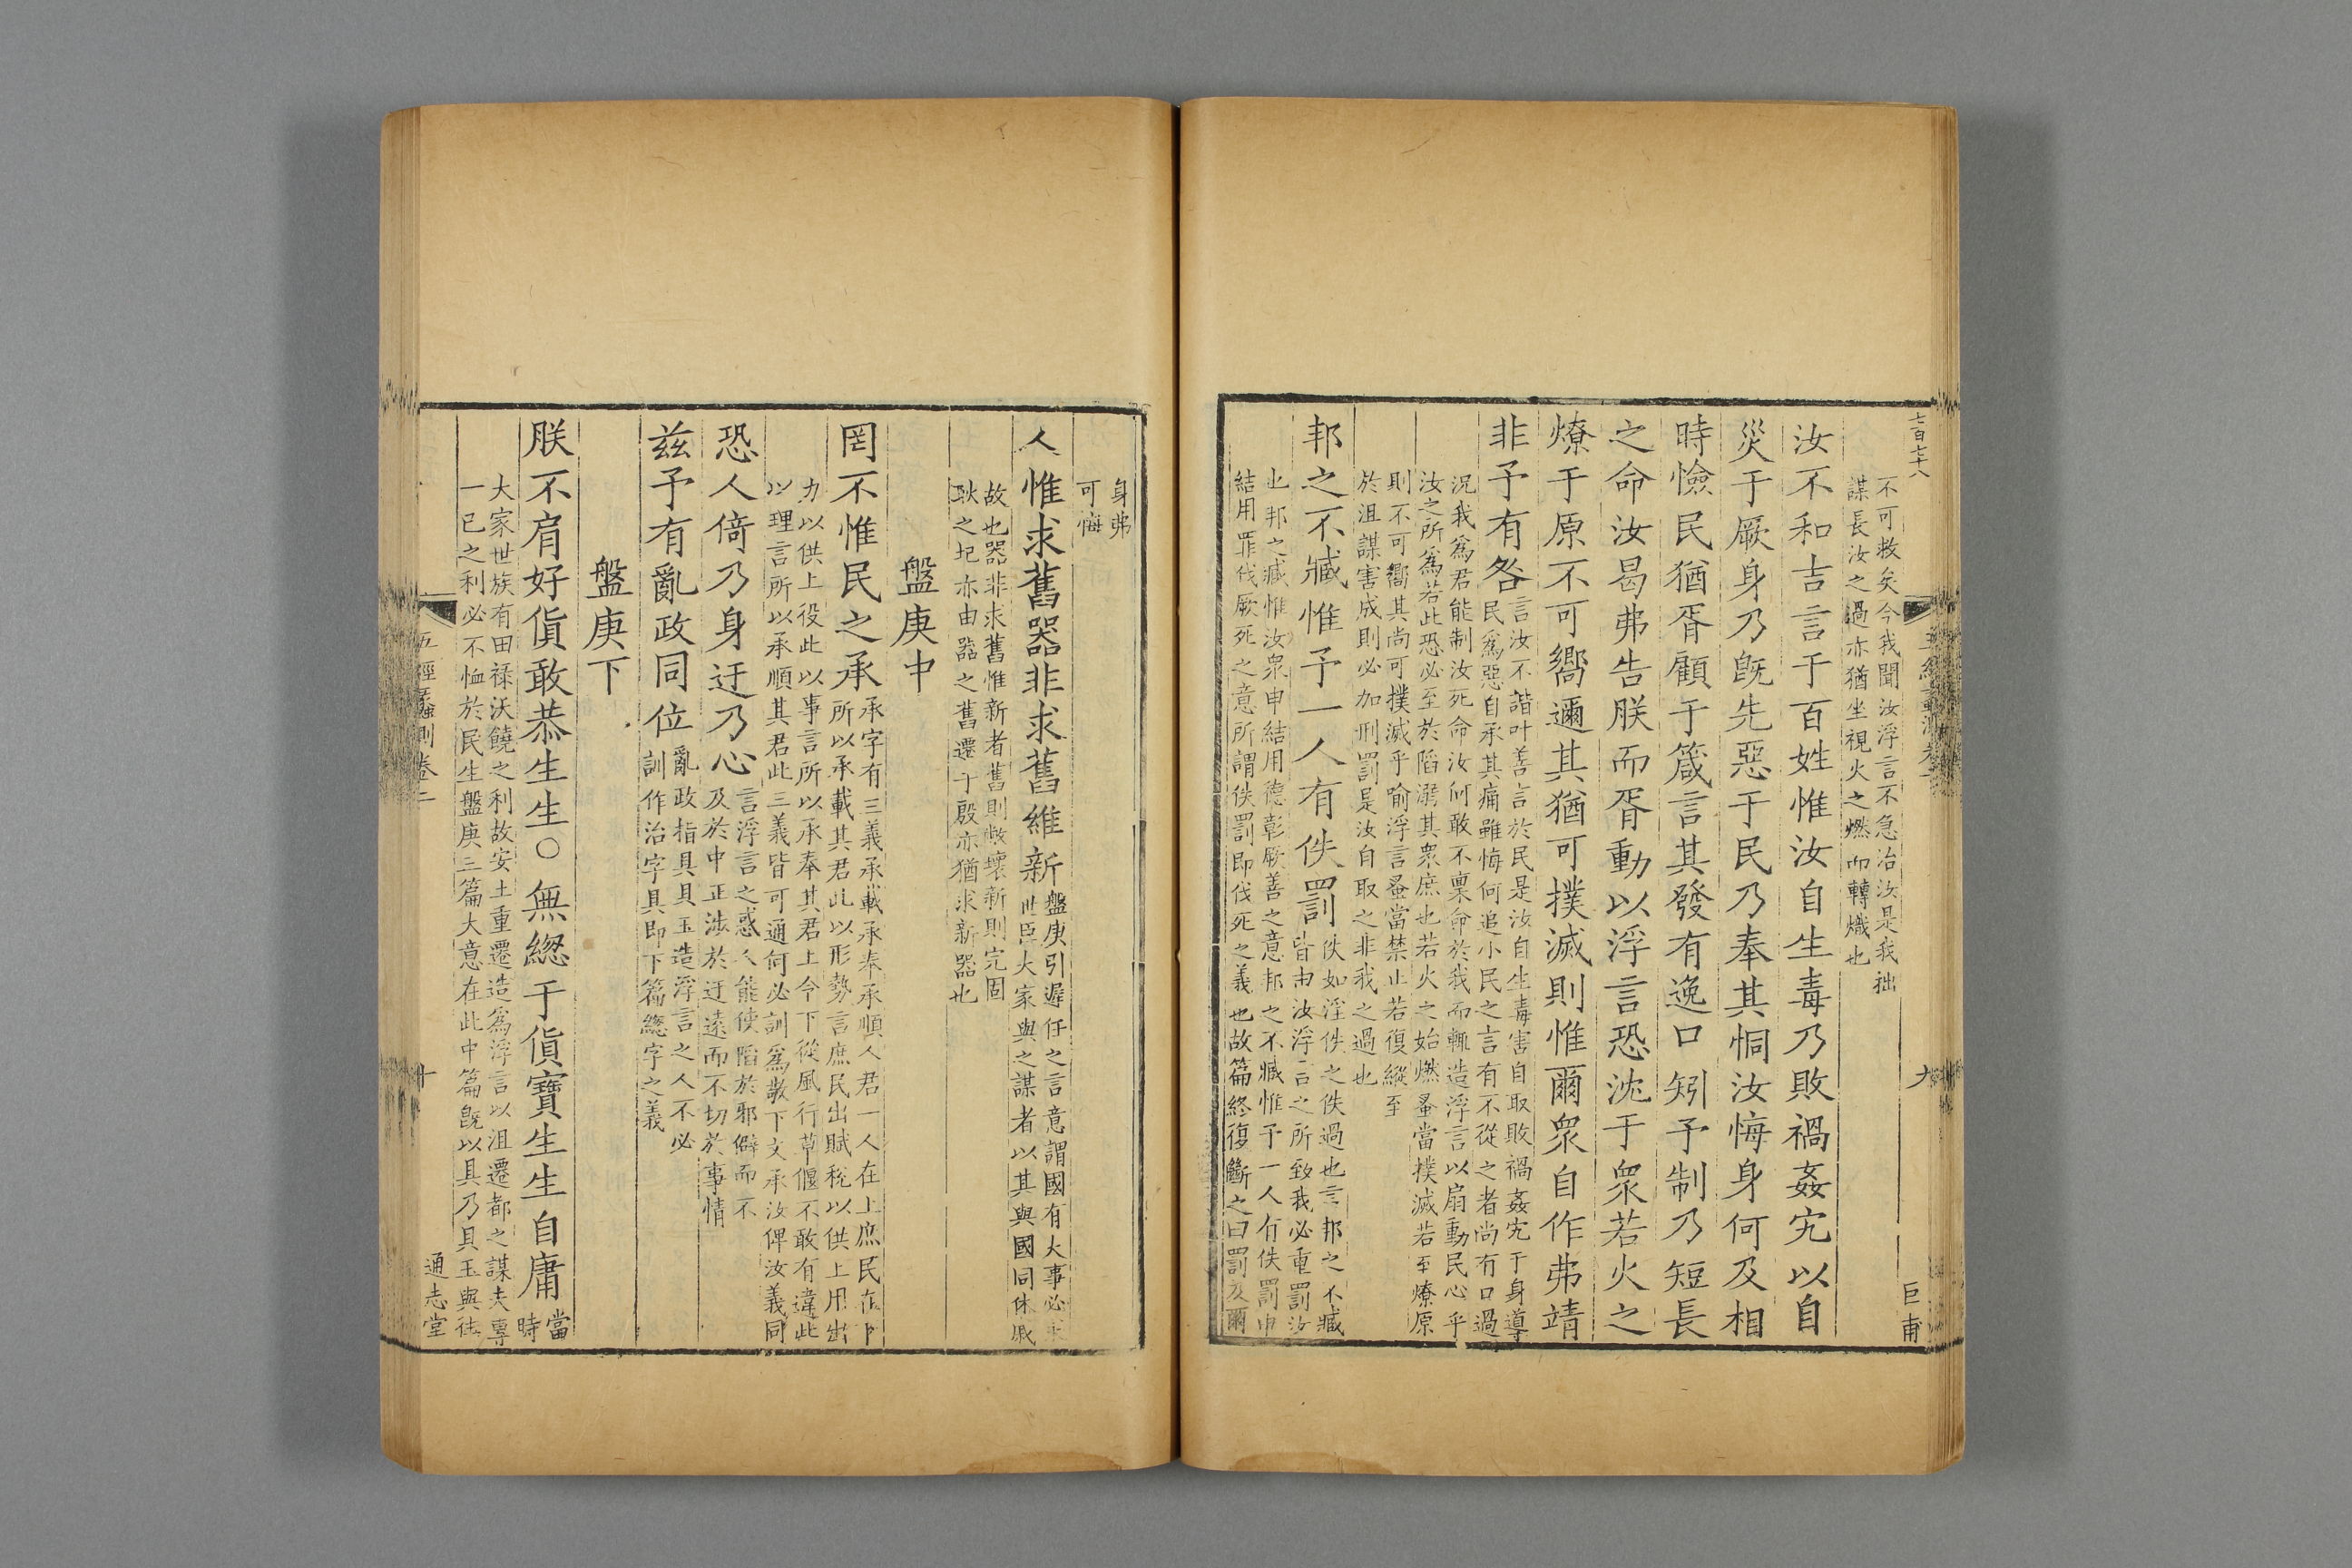 七百七十八
不可救矣今我聞汝浮言不急治汝是我拙
謀長汝之過亦猶坐視火之燃而轉熾也
汝不和吉言于百姓惟汝自生毒乃敗禍姦宄以自
災于厥身乃旣先惡于民乃奉其恫汝悔身何及相
時憸民猶胥顧于箴言其發有逸口矧予制乃短長
之命汝曷弗告朕而胥動以浮言恐沈于衆若火之
燎于原不可嚮邇其猶可撲滅則惟爾衆自作弗靖
非予有咎
言汝不諧叶善言於民是汝自生毒害自取敗禍姦宄于身導
民爲惡自承其痛雖悔何追小民之言有不從之者尚有口過
況我爲君能制汝死命汝何敢不稟命於我而輒造浮言以扇動民心乎
汝之所爲若此恐必至於陷溺其衆庶也若火之始燃蚤當撲滅若至燎原
則不可嚮其尚可撲滅乎喻浮言蚤當禁止若復縱至
於沮謀害成則必加刑罰是汝自取之非我之過也
邦之不臧惟予一人有佚罰
佚如淫佚之佚過也言邦之不臧
皆由汝浮言之所致我必重罰汝
也邦之臧惟汝衆申結用德彰厥善之意邦之不臧惟予一人有佚罰申
結用罪伐厥死之意所謂佚罰即伐死之義也故篇終復斷之曰罰及爾
九
巨甫
身弗
可悔
人惟求舊器非求舊維新
盤庚引遲任之言意謂國有大事必求
世臣大家與之謀者以其與國同休戚
故也器非求舊惟新者舊則敝壞新則完固
耿之圯亦由器之舊遷于殷亦猶求新器也
盤庚中
罔不惟民之承
承字有三義承載承奉承順人君一人在上庶民在下
所以承載其君此以形勢言庶民出賦稅以供上用出
力以供上役此以事言所以承奉其君上令下從風行草偃不敢有違此
以理言所以承順其君此三義皆可通何必訓爲敬下文承汝俾汝義同
恐人倚乃身迂乃心
言浮言之惑人能使陷於邪僻而不
及於中正涉於迂遠而不切於事情
茲予有亂政同位
亂政指具貝玉造浮言之人不必
訓作治字具即下篇緫字之義
盤庚下
朕不肩好貨敢恭生生○無緫于貨寶生生自庸
當
時
大家世族有田祿沃饒之利故安土重遷造爲浮言以沮遷都之謀夫專
一已之利必不恤於民生盤庚三篇大意在此中篇旣以具乃貝玉與
五經蠡測卷二
十
通志堂